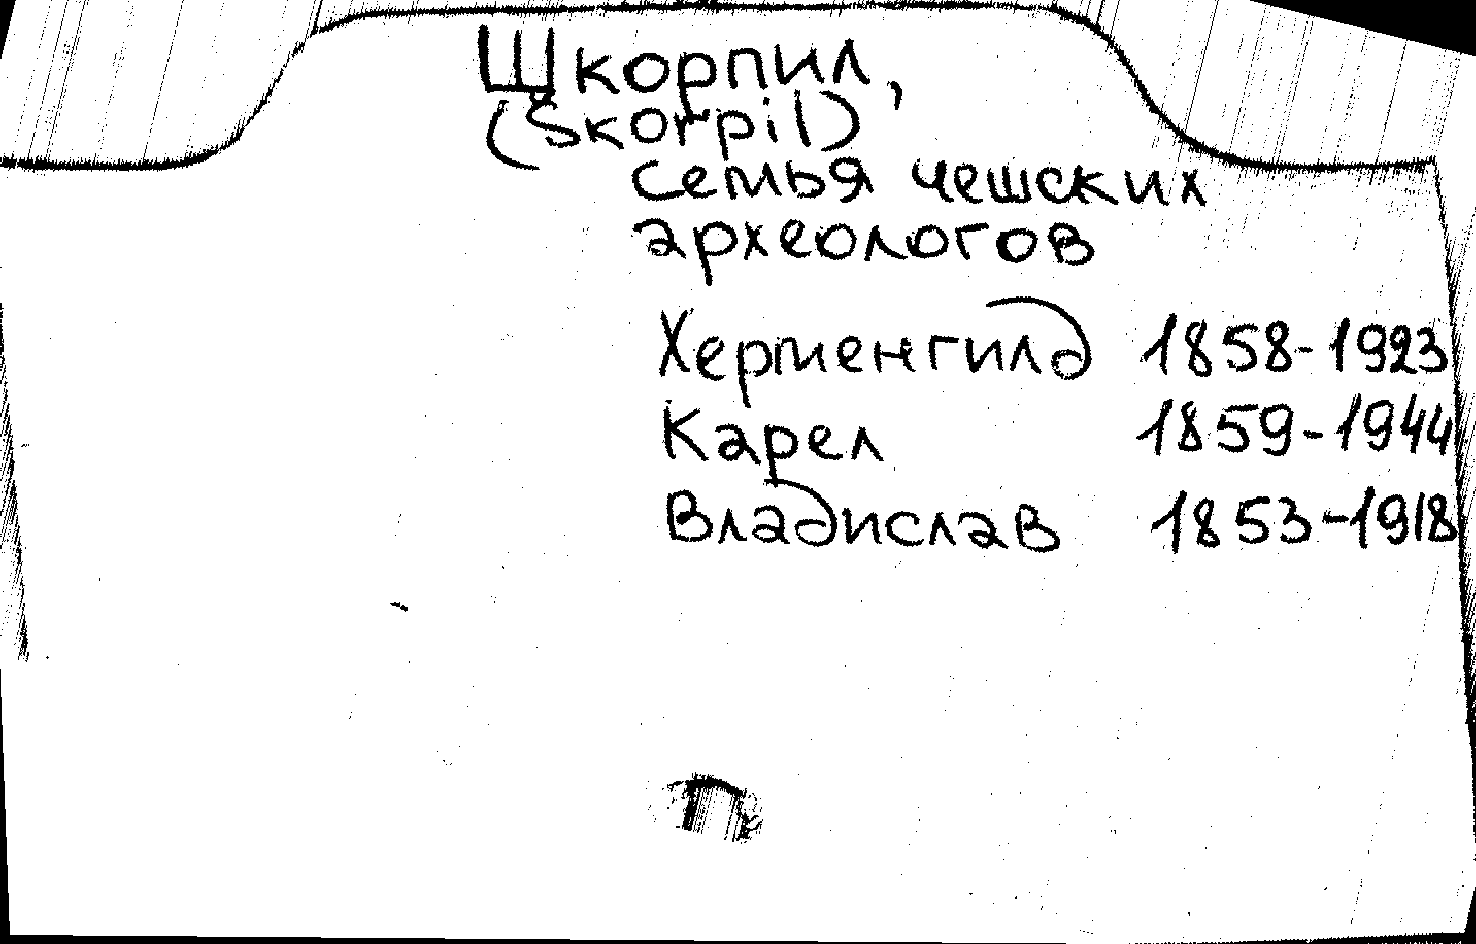 Шкорпил,
(Škorpil)
семья чешских
археологов
Херменгилд 1858-1923
Карел 1859-1944
Владислав 1853-1918